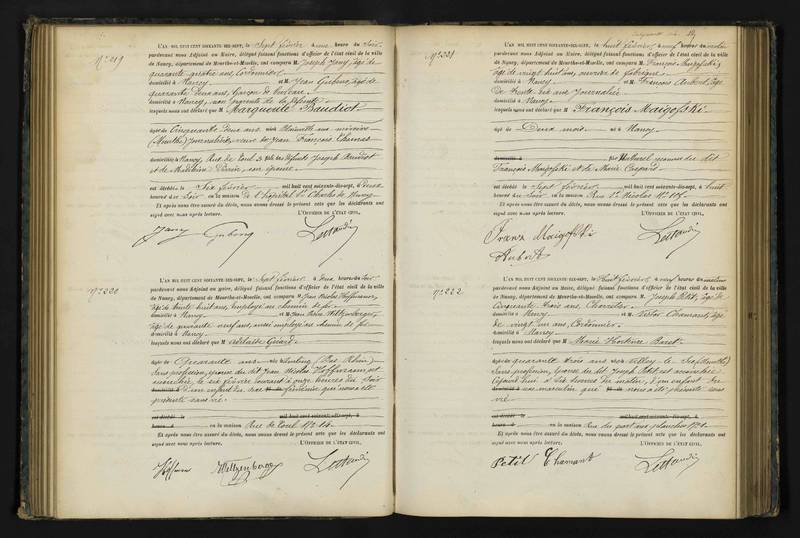 N° 219
L'AN MIL HUIT CENT SOIXANTE-DIX-SEPT, le Sept février à une heure du Soir
pardevant nous Adjoint au Maire, délégué faisant fonctions d'officier de l'état civil de la ville
de Nancy, département de Meurthe-et-Moselle, ont comparu M. Joseph Jany, âgé de
quarante quatre ans, Cordonnier
domicilié à Nancy et M. Jean âgé de
quarante deux ans, Garçon de bureau
domicilié à Nancy, non parents de la défunte
lesquels nous ont déclaré que M Marguerite Baudiot
âgée de Cinquante deux ans née
(Meurthe) Journalière, veuve de Jean François
domiciliée à Nancy, Rue de Toul fille des défunts Joseph Baudiot
et de Madeleine son épouse
est décédée le Six février mil huit cent soixante-dix-sept, à
heures du Soir en la maison de l'hôpital St Charles de Nancy
Et après nous être assuré du décès, nous avons dressé le présent acte que les déclarants ont
signé avec nous après lecture. L'OFFICIER DE L'ÉTAT CIVIL,
Jany
N° 220
L'AN MIL HUIT CENT SOIXANTE-DIX-SEPT, le Sept février, à deux heures du Soir
pardevant nous Adjoint au Maire, délégué faisant fonctions d'officier de l'état civil de la ville
de Nancy, département de Meurthe-et-Moselle, ont comparu M. Jean Nicolas Hoffmann,
âgé de trente huit ans, employé au chemin de fer
domicilié à Nancy et M. Jean
âgé de quarante neuf ans, aussi employé au chemin de fer
domicilié à Nancy
lesquels nous ont déclaré que M Adélaïde Gérard
âgée de Quarante ans née (Bas Rhin)
Sans profession, épouse du dit Jean Nicolas Hoffmann, est
accouchée, le six février courant à onze heures du Soir
d'un enfant du sexe féminin qui nous a été
présenté sans vie.
est décédé le mil huit cent soixante-dix-sept, à
heures du en la maison Rue de Toul N°
Et après nous être assuré du décès, nous avons dressé le présent acte que les déclarants ont
signé avec nous après lecture. L'OFFICIER DE L'ÉTAT CIVIL,
N° 221
L'AN MIL HUIT CENT SOIXANTE-DIX-SEPT, le huit février, à neuf heures du matin
pardevant nous Adjoint au Maire, délégué faisant fonctions d'officier de l'état civil de la ville
de Nancy, département de Meurthe-et-Moselle, ont comparu M. François Maigofski,
âgé de vingt huit ans, ouvrier de fabrique
domicilié à Nancy et M. François Aubert, âgé
de trente six ans Journalier
domicilié à Nancy
lesquels nous ont déclaré que M François Maigofski
âgé de Deux mois né à Nancy
domicilié à fils Naturel reconnu du dit
François Maigofski et de Marie
est décédé le Sept février mil huit cent soixante-dix-sept, à huit
heures du Soir en la maison Rue St Nicolas N°
Et après nous être assuré du décès, nous avons dressé le présent acte que les déclarants ont
signé avec nous après lecture. L'OFFICIER DE L'ÉTAT CIVIL,
Franz Maigofski
Aubert
N° 222
L'AN MIL HUIT CENT SOIXANTE-DIX-SEPT, le huit février, à neuf heures du matin
pardevant nous Adjoint au Maire, délégué faisant fonctions d'officier de l'état civil de la ville
de Nancy, département de Meurthe-et-Moselle, ont comparu M. Joseph Petit, âgé de
Cinquante trois ans, Charretier
domicilié à Nancy et M. Victor Chamant, âgé
de vingt un ans, Cordonnier
domicilié à Nancy
lesquels nous ont déclaré que M Marie Hortense
âgée de quarante trois ans née
Sans profession, épouse du dit Joseph Petit est accouchée
Cejourd'hui à six heures du matin, d'un enfant du
sexe masculin qui nous a été présenté sans
vie
est décédé le mil huit cent soixante-dix-sept, à
heures du en la maison Rue
Et après nous être assuré du décès, nous avons dressé le présent acte que les déclarants ont
signé avec nous après lecture. L'OFFICIER DE L'ÉTAT CIVIL,
Petit Chamant